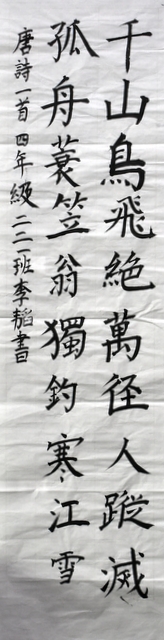 千山鳥飛絕萬徑人蹤滅
孤舟蓑笠翁獨釣寒江雪
唐詩一首 四年級二二一班李韜書